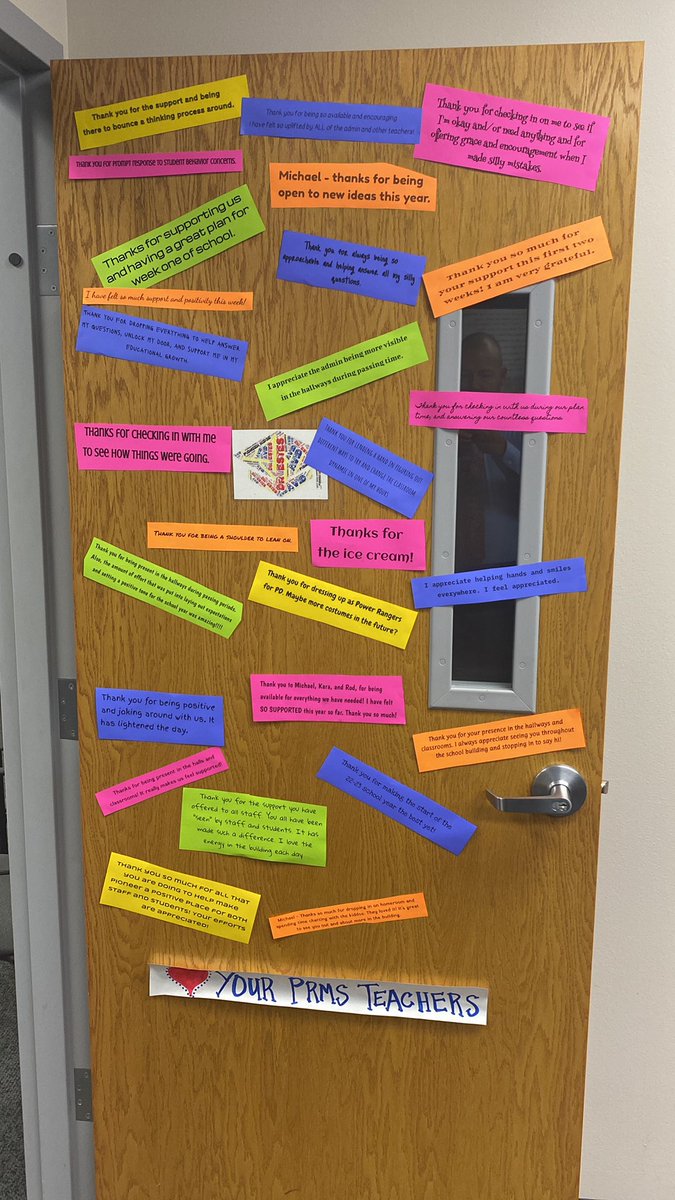 Thank you for the support and being
there to bounce a thinking process around.
Thank you for being so available and encouraging
I have felt so uplifted by ALL of the admin and other teachers!
Thank you for checking in on me to see if
I'm okay and/or need anything and for
offering grace and encouragement when I
made silly mistakes.
Thank you for prompt response to student behavior concerns.
Michael - thanks for being
open to new ideas this year.
Thanks for supporting us
and having a great plan for
week one of school.
Thank you for always being so
approachable and helping answer all my silly
questions.
Thank you so much for
your support this first two
weeks! I am very grateful.
I have felt so much support and positivity this week!
Thank you for dropping everything to help answer
my questions, unlock my door, and support me in my
educational growth.
I appreciate the admin being more visible
in the hallways during passing time.
Thank you for checking in with us during our plan
time, and answering our countless questions.
Thanks for checking in with me
to see how things were going.
Thank you for lending a hand in figuring out
different ways to try and change the classroom
dynamic in one of my hours
Thank you for being a shoulder to lean on.
Thanks for
the ice cream!
Thank you for being present in the hallways during passing periods.
Also, the amount of effort that was put into laying out expectations
and setting a positive tone for the school year was amazing!!!!
Thank you for dressing up as Power Rangers
for PD. Maybe more costumes in the future?
I appreciate helping hands and smiles
everywhere. I feel appreciated.
Thank you for being positive
and joking around with us. It
has lightened the day.
Thank you to Michael, Kara, and Rod, for being
available for everything we have needed! I have felt
SO SUPPORTED this year so far. Thank you so much!
Thank you for your presence in the hallways and
classrooms. I always appreciate seeing you throughout
the school building and stopping in to say hi!
Thanks for being present in the halls and
classrooms! It really makes us feel supported!
Thank you for making the start of the
22-23 school year the best yet!
Thank you for the support you have
offered to all staff. You all have been
"seen" by staff and students. It has
made such a difference. I love the
energy in the building each day
Thank you so much for all that
you are doing to help make
Pioneer a positive place for both
staff and students! Your efforts
are appreciated!
Michael - Thanks so much for dropping in on homeroom and
spending time chatting with the kiddos. They loved it! It's great
to see you out and about more in the building.
YOUR PRMS TEACHERS